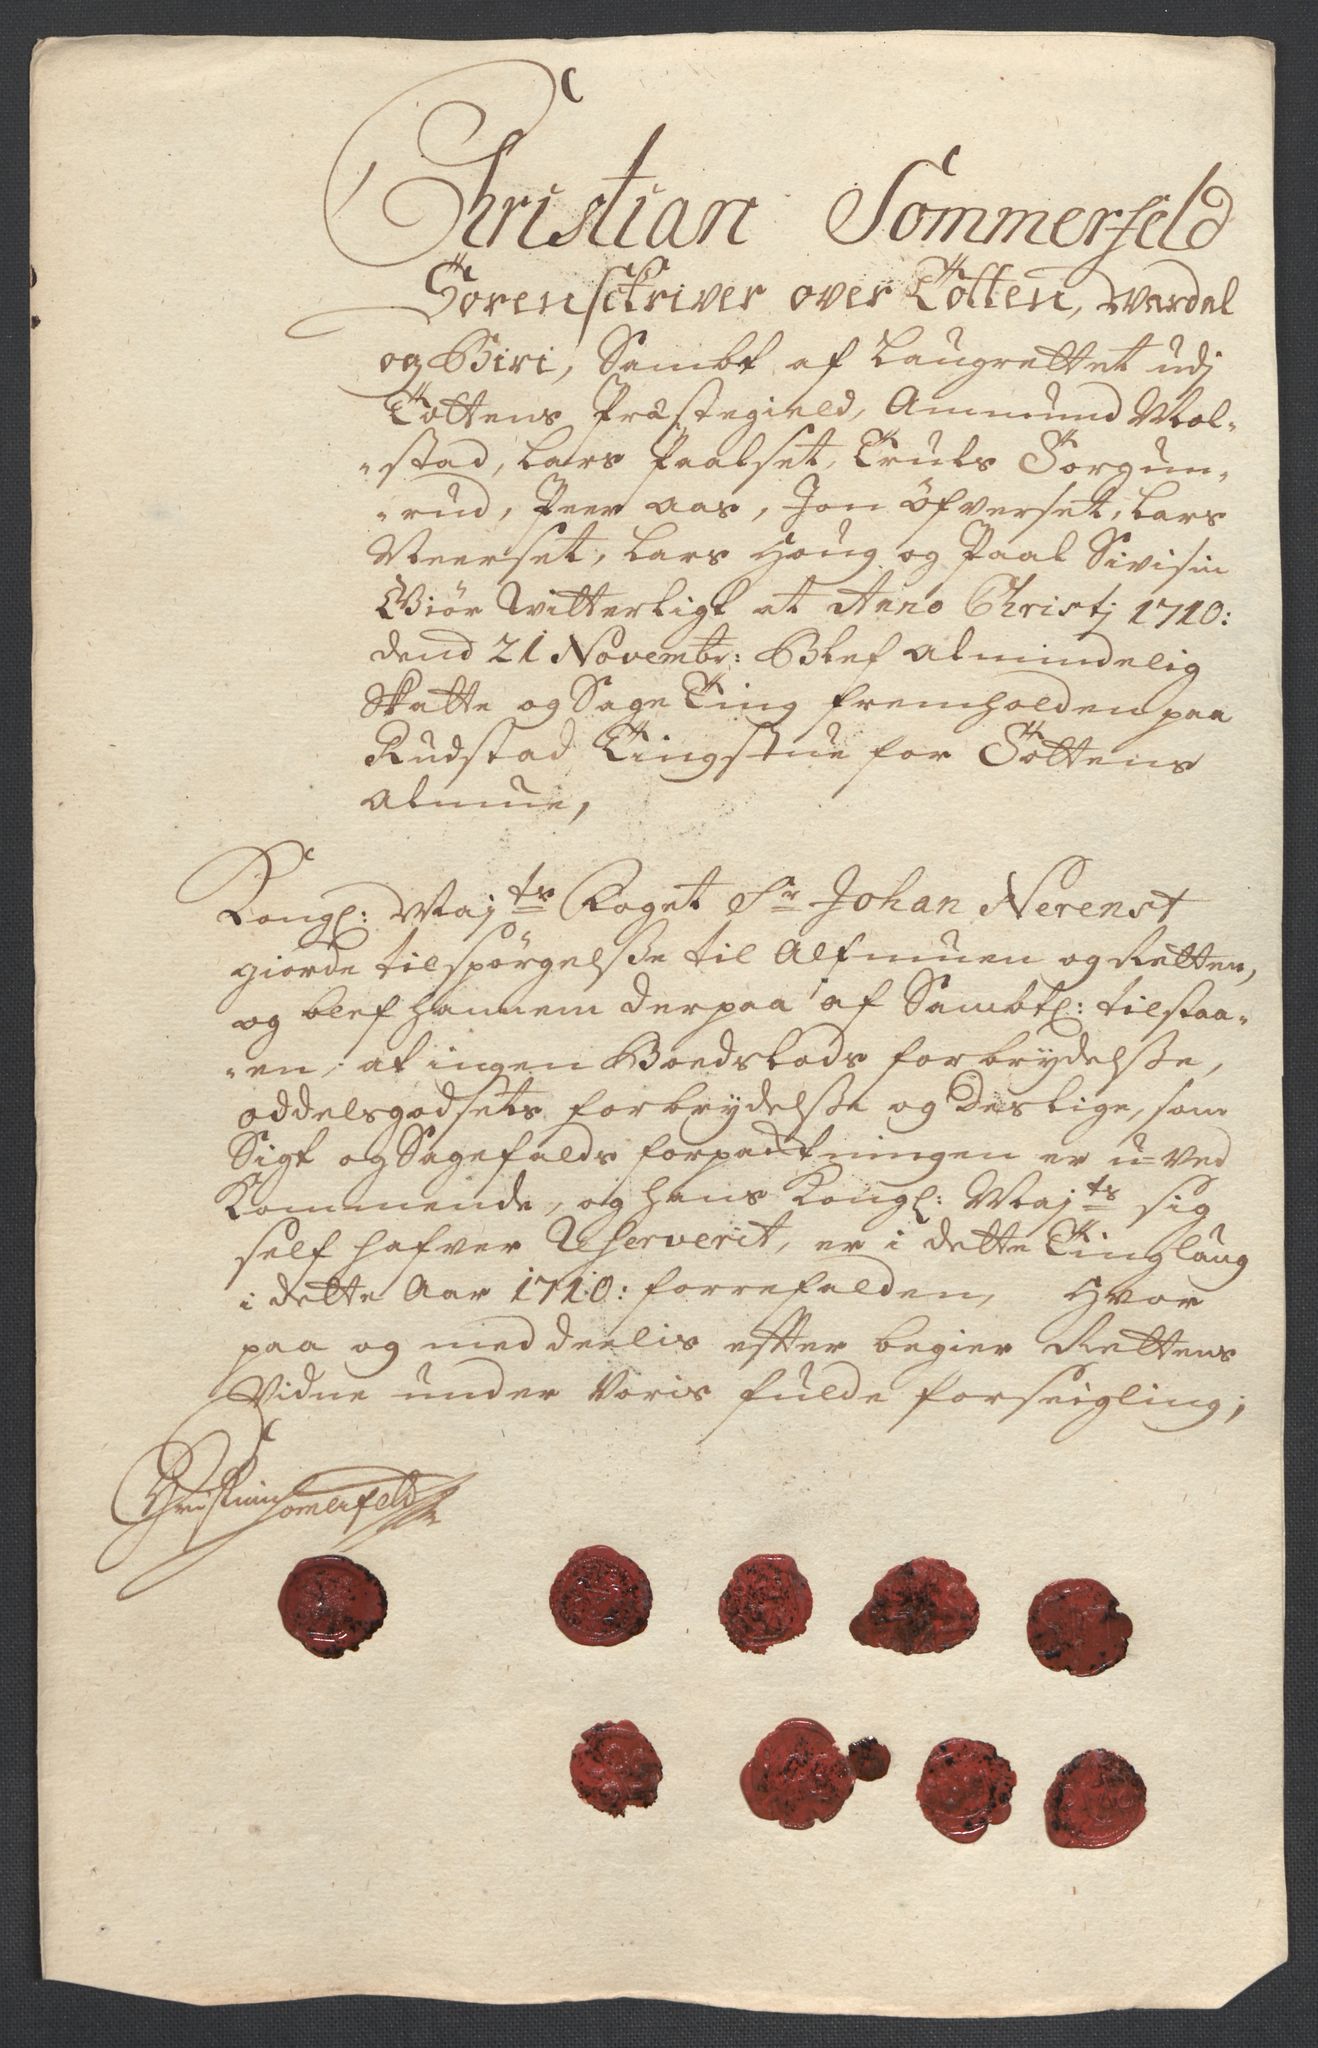 Christian Sommerfeld
Sorenschriver over Totten, Wardal
og Biri, Sambt af Laugrettet udj
Tottens Præstegield, Ammund Mæl-
-stad, Lars Paalset, Truls Torgun-
-rud, Peer Aas, Jon Øfverset, Lars
Meerset, Lars Houg og Paal Sivisin
Giør Witterligt at Anno Christj 1710:
dend 21 Novembr: Blef Almindelig
Skatte og Sage Ting fremholden paa
Rudstad Tingstue for Tottens
Almue,
Kongl: Maj:ts Foget Sr Johan Nerenst
giorde tilspørgelsse til Alfmuen og Retten,
og blef hannem derpaa af Sambtl: tilstaa-
-en, at ingen Boedslods forbrydelsse,
oddelsgodsets forbrydelsse og deslige, som
Sigt og Sagefalds forpactningen er u-ved
Kommende, og hans Kongl: Maj:ts sig
self hafver Reserverit, er i dette Tinglaug
i dette Aar 1710: forrefalden, Hvor
paa og meddeelis effter begier Rettens
Vidne under Voris fulde forseigling;
Christian Somerfeld